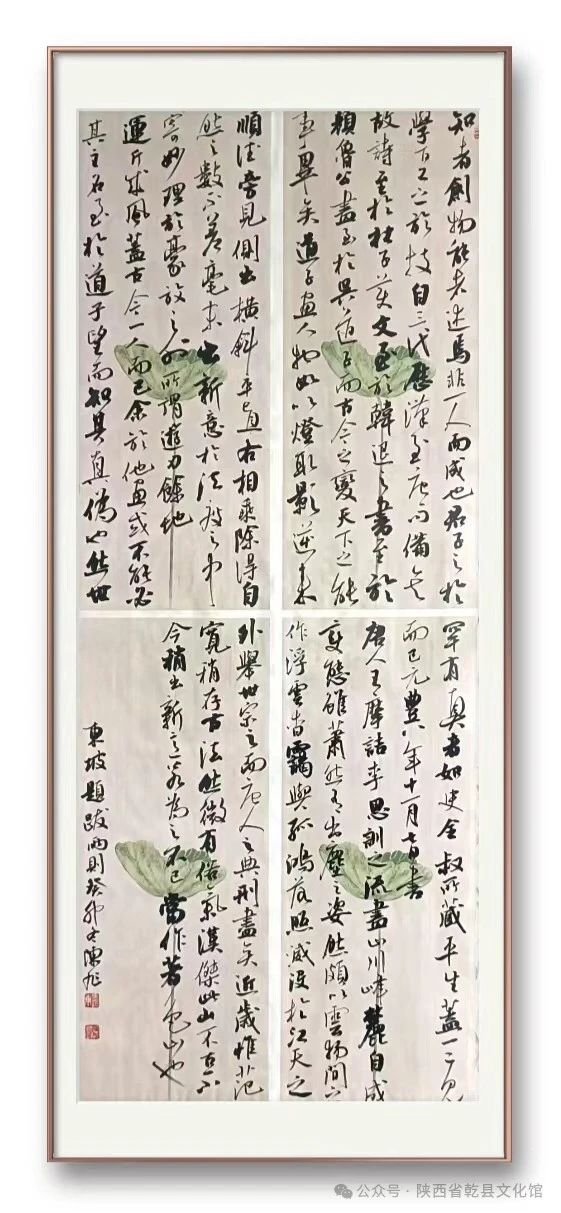 知者創物能者述焉非一人而成也君子之於
學百工之於技自三代歷漢至唐而備矣
故詩至於杜子美文至於韓退之書至於
顏魯公畫至於吳道子而古今之變天下之能
事畢矣道子畫人物如以燈取影逆來
順往旁見側出橫斜平直各相乘除得自
然之數不差毫末出新意於法度之中
寄妙理於豪放之外所謂遊刃餘地
運斤成風蓋古今一人而已余於他畫或不能必
其主名至於道子望而知其真偽也然世
罕有真者如史全叔所藏平生蓋一二見
而已元豐八年十一月七日書
唐人王摩詰李思訓之流畫山川峰麓自成
變態雖蕭然有出塵之姿然頗以雲物間之
作浮雲杳靄與孤鴻落照滅沒於江天之
外舉世宗之而唐人之典刑盡矣近歲惟范
寬稍存古法然微有俗氣漢傑此山不古不
今稍出新意若為之不已當作著色山也
東坡題跋兩則癸卯冬陳旭
公众号·陕西省乾县文化馆